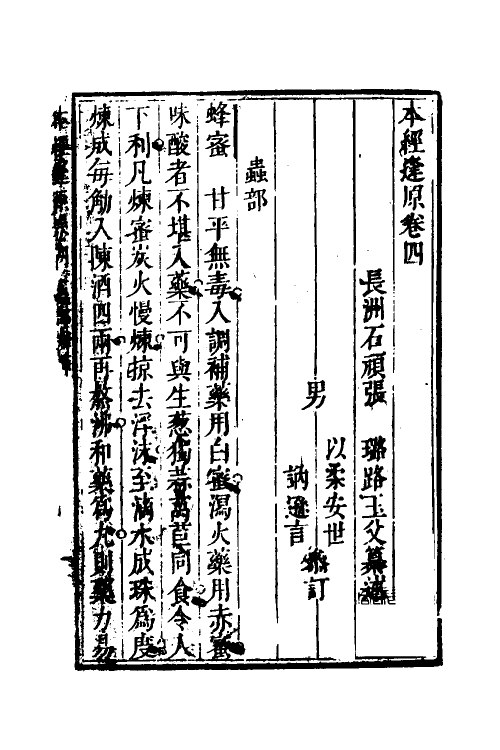 本經逢原卷四
長洲石頑張　璐路玉父纂述
男　以柔安世
訥遜言　參訂
蟲部
蜂蜜　甘平無毒入調補藥用白蜜瀉火藥用赤蜜
味酸者不堪入藥不可與生葱獨蒜萵苣同食令人
下利凡煉蜜炭火慢煉掠去浮沫至滴水成珠爲度
煉成每觔入陳酒四兩再熬沸和藥爲丸則藥力易